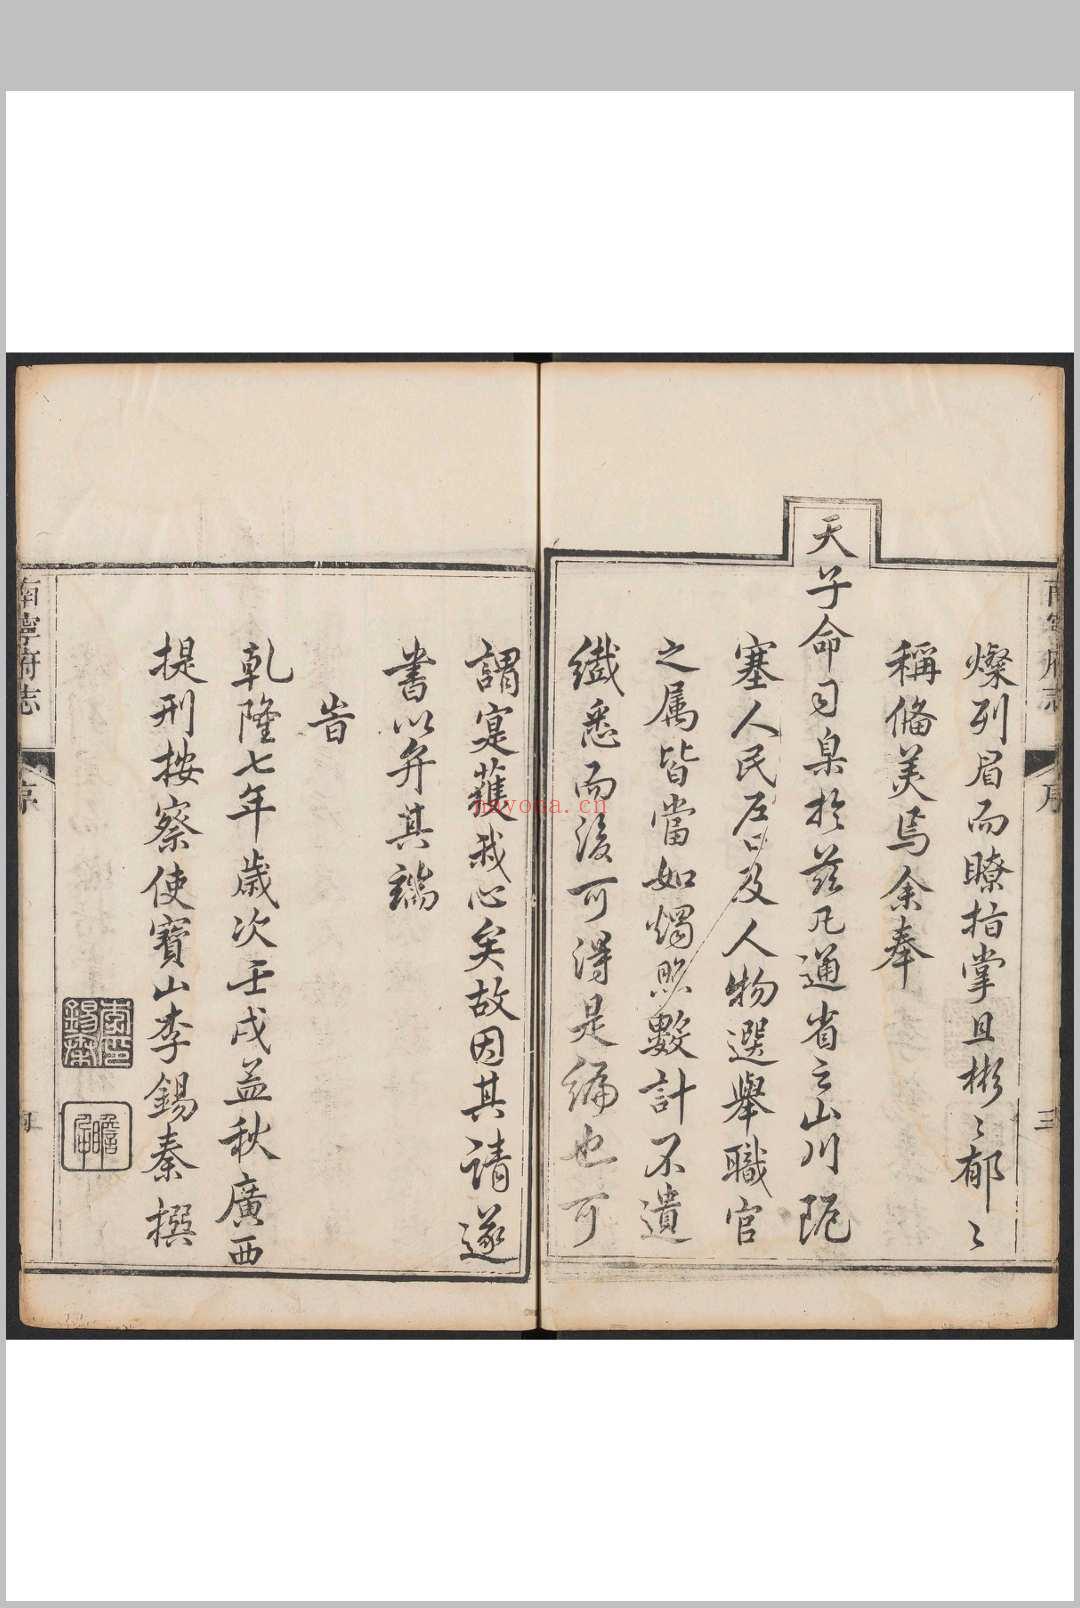 燦列眉而瞭指掌且彬〻郁〻
稱俻美焉余奉
天子命司臬於茲凡通省之山川阨
塞人民户口及人物選舉職官
之属皆當如燭照數計不遺
纎悉而後可得是編也可
謂寔獲我心矣故因其請遂
書以弁其端
旹
乾隆七年歲次壬戌孟秋廣西
提刑按察使寶山李錫秦撰
南寧府志
序
三
南寧府志
序
李錫秦印
novoga.cn